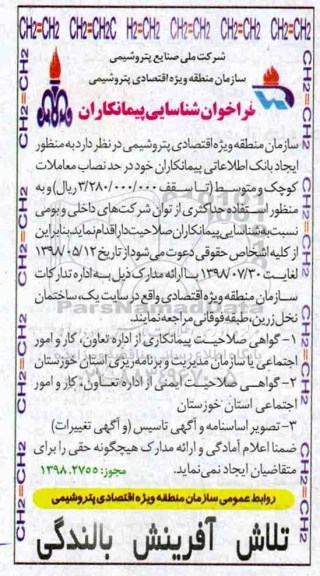 CH2=CH2 CH2=CH2C H2=CH2 CH2=CH2 CH2=CH2
شرکت ملی صنایع پتروشیمی
سازمان منطقه ویژه اقتصادی پتروشیمی
فراخوان شناسایی پیمانکاران
سازمان منطقه ویژه اقتصادی پتروشیمی در نظر دارد به منظور
ایجاد بانک اطلاعاتی پیمانکاران خود در حد نصاب معاملات
کوچک و متوسط (تا سقف ۳/۲۸۰/۰۰۰/۰۰۰ ریال) و به
منظور استفاده حداکثری از توان شرکت‌های داخلی و بومی
نسبت به شناسایی پیمانکاران صلاحیت‌دار اقدام نماید بنابراین
از کلیه اشخاص حقوقی دعوت می‌شود از تاریخ ۱۳۹۸/۰۵/۱۲
لغایت ۱۳۹۸/۰۷/۳۰ با ارائه مدارک ذیل به اداره تدارکات
سازمان منطقه ویژه اقتصادی واقع در سایت یک، ساختمان
نخل زرین، طبقه فوقانی مراجعه نمایند.
۱- گواهی صلاحیت پیمانکاری از اداره تعاون، کار و امور
اجتماعی یا سازمان مدیریت و برنامه‌ریزی استان خوزستان
۲- گواهی صلاحیت ایمنی از اداره تعاون، کار و امور
اجتماعی استان خوزستان
۳- تصویر اساسنامه و آگهی تاسیس (و آگهی تغییرات)
ضمنا اعلام آمادگی و ارائه مدارک هیچگونه حقی را برای
متقاضیان ایجاد نمی‌نماید.
مجوز: ۱۳۹۸.۲۷۵۵
روابط عمومی سازمان منطقه ویژه اقتصادی پتروشیمی
تلاش آفرینش بالندگی